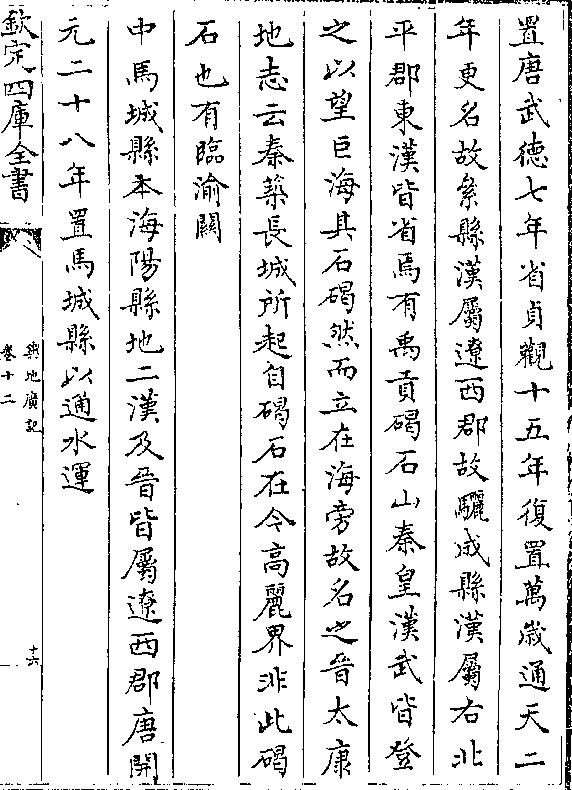 置唐武德七年省貞觀十五年復置萬歲通天二
年更名故絫縣漢屬遼西郡故驪成縣漢屬右北
平郡東漢皆省焉有禹貢碣石山秦皇漢武皆登
之以望巨海其石碣然而立在海旁故名之晉太康
地志云秦築長城所起自碣石在今高麗界非此碣
石也有臨渝關
中馬城縣本海陽縣地二漢及晉皆屬遼西郡唐開
元二十八年置馬城縣以通水運
欽定四庫全書
輿地廣記
卷十二
十六